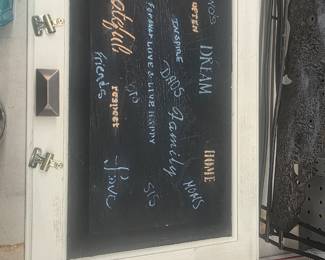 OFTEN
DREAM
HOME
INSPIRE
DADS
Family
MOMS
FOREVER LOVE & LIVE HAPPY
SIS
respect
friends
Love